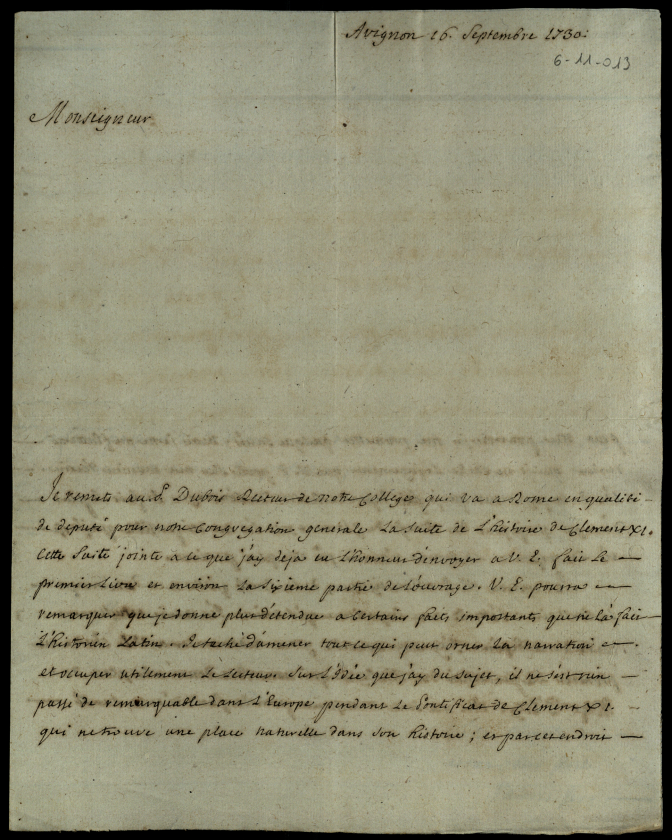 Avignon 16. Septembre 1730.
6-11-013
Monseigneur
Je remets au P. Dubois Recteur de notre College qui va a Rome en qualité
de deputé pour notre Congregation generale la suite de L'histoire de Clement XI.
Cette Suite jointe a ce que j'ay deja eu L'honneur d'envoyer a V. E. fait Le
premier Livre et environ La sixieme partie de L'ouvrage. V. E. pourra
remarquer que je donne plus d'étendue a certains faits importants que ne L'a fait
L'historien Latin. Je taché d'amener tout ce qui peut orner La narration
et occuper utilement Le Lecteur. Sur L'Idée que j'ay du sujet, il ne s'est rien
passé de remarquable dans L'Europe pendant Le Pontificat de Clement XI.
qui ne trouve une place naturelle dans son histoire ; et par cet endroit